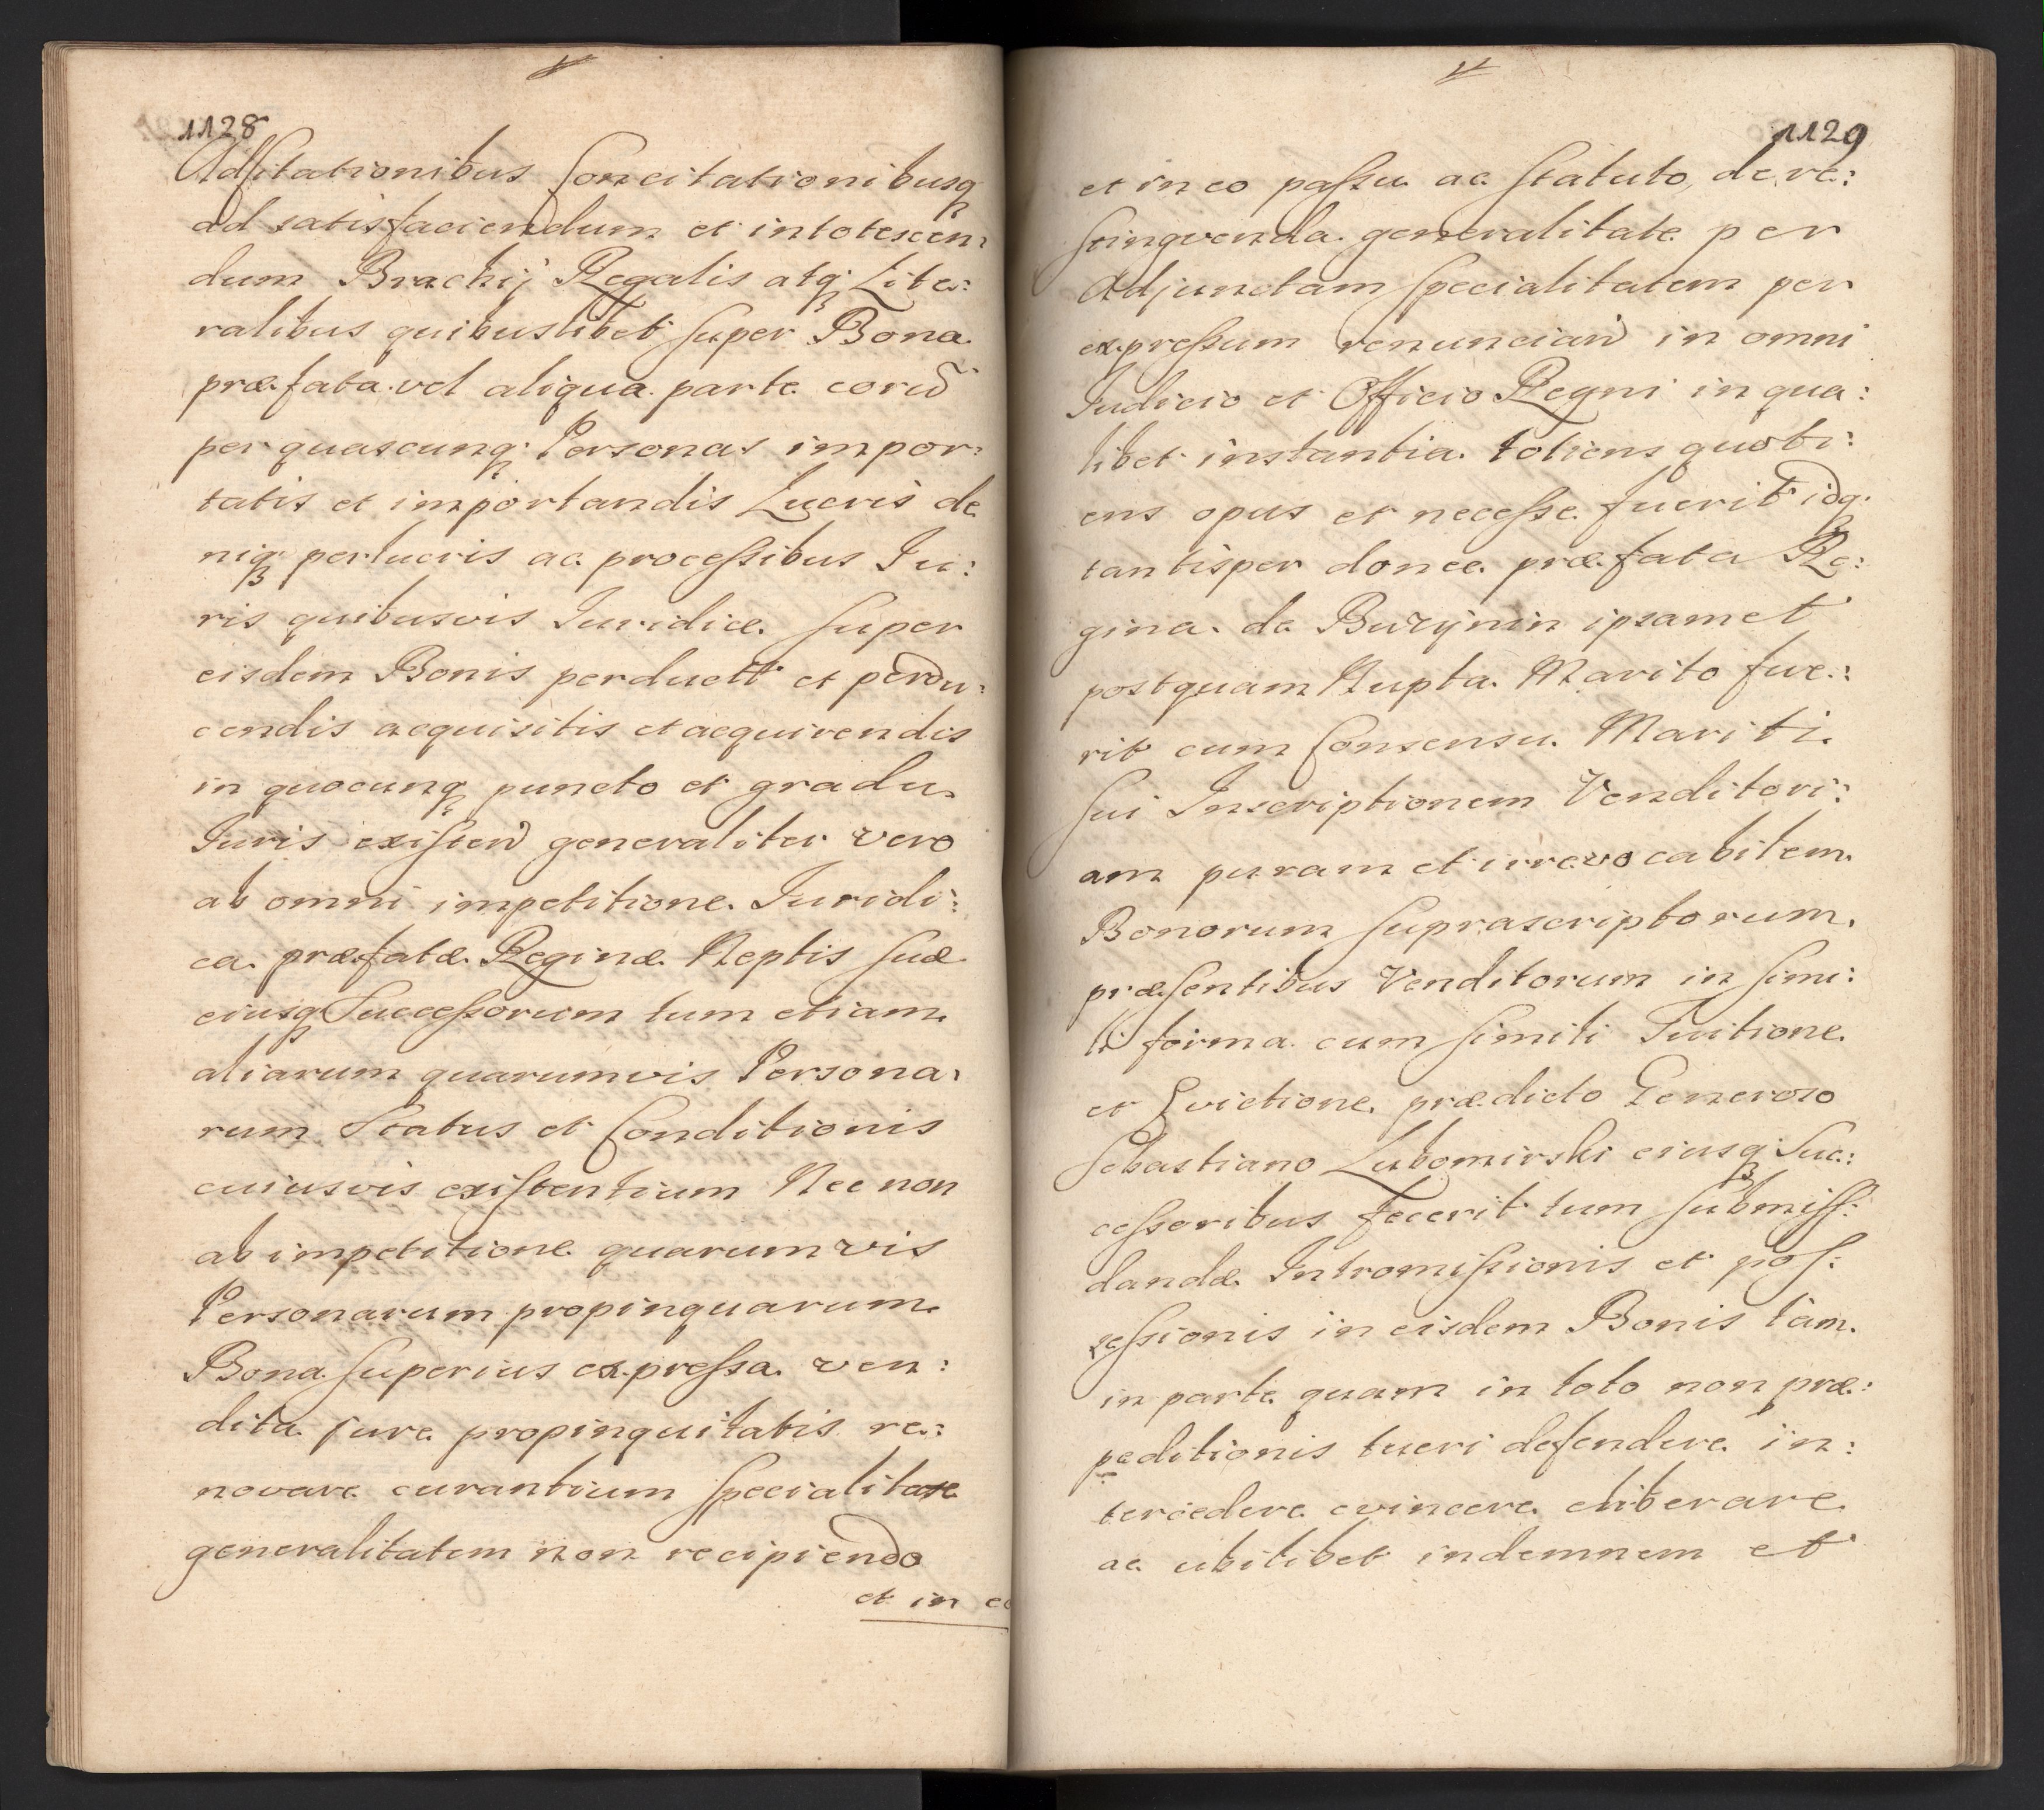 1128
Adcitationibus Concitationibusq
ad satisfaciendum et intotescen:
dum Brachij Regalis atq Lite:
ralibus quibuslibet super Bona
præfata vel aliqua parte eorũ
per quascunq Personas impor:
tatis et importandis Lucris de
niq perlucris ac processibus Iu:
ris quibusvis Iuridice super
eisdem Bonis perductt et perdu:
cendis acquisitis et acquirendis
in quocunq puncto et gradu
Iuris existen generaliter vero
ab omni impetitione Iuridi:
ca præfatæ Reginæ Neptis suæ
eiusq Successorum tum etiam
aliarum quarumvis Persona:
rum Status et Conditionis
cuiusvis existentium Nec non
ab impetitione quarumvis
Personarum propinquarum
Bona superius expressa ven:
dita jure propinquitatis re:
novare curantium specialitate
generalitatem non recipiendo
et in eo
1129
et in eo passu ac statuto de re:
stinqvenda generalitate per
Adjunctam specialitatem per
expressum renuncian in omni
Iudicio et Officio Regni in qua:
libet instantia totiens quoti:
ens opus et necesse fuerit idq
tantisper donec præfata Re:
gina de Burzÿnin ipsamet
postquam Nupta Marito fue:
rit cum Consensu Mariti
sui Inscriptionem Venditori:
am puram et irrevocabilem
Bonorum supra scriptorum
præsentibus Venditorum in simi:
li forma cum simili Tuitione
et Evictione prædicto Generoso
Sebastiano Lubomirski eiusq Suc:
cessoribus fecerit tum submiss:
dandæ Intromissionis et pos:
sessionis in eisdem Bonis tam
in parte quam in toto non præ:
peditionis tueri defendere in:
tercedere evincere eliberare
ac ubilibet indemnem et